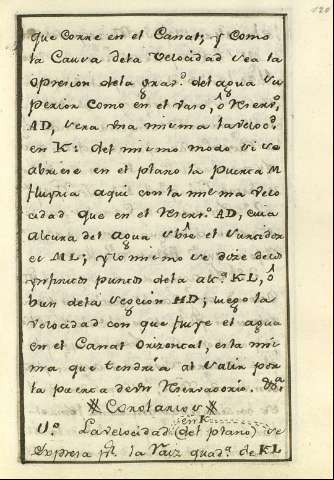 120
que corre en el Canal; y como
la Causa dela velocidad sea la
opresion dela grav.ᵈ del agua su
perior como en el vaso, ô Reserv.º
AD, sera una misma la veloc.ᵈ
en K: del mismo modo si se
abriese en el plano la puerta M
fluyria aqui con la misma velo
cidad que en el Reserv.º AD, cuia
altura del agua sobre el surtidor
es ML; y lo mismo se dize delos
ynfinitos puntos dela alt.ª KL, ô
bun dela seccion HD; luego la
velocidad con que fluye el agua
en el Canal Orizontal, es la mis
ma que tendria al salir por
la puerta de un Reservatorio.
Corolarios
1.º La velocidad en K (del plano) se
expresa p.ʳ la Raiz quad.ª de KL